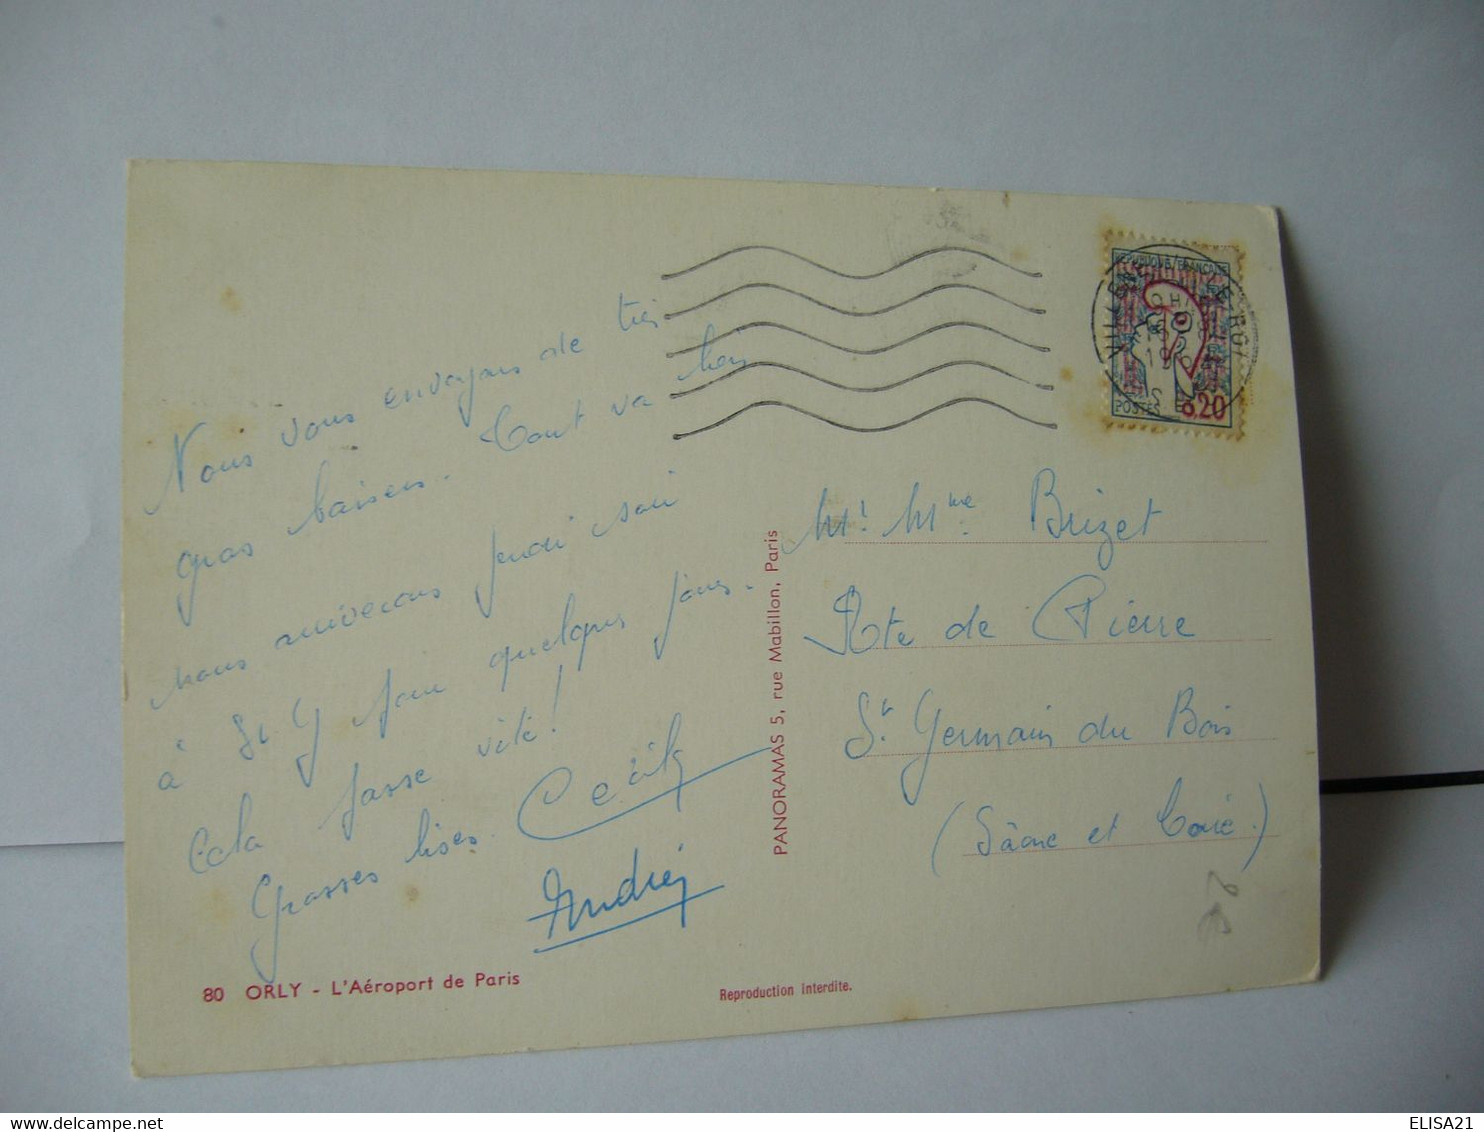 Nous vous envoyons de très
gros baisers. Tout va bien
nous arriverons jeudi soir
à St G pour quelques jours.
Cela passe vite!
Grosses bises. Cécile
André
80 ORLY - L'Aéroport de Paris
Reproduction interdite.
PANORAMAS 5, rue Mabillon, Paris
REPUBLIQUE FRANÇAISE
POSTES 0.20
Mr Mme Brizet
Rte de Pierre
St Germain du Bois
(Saône et Loire)
ELISA21